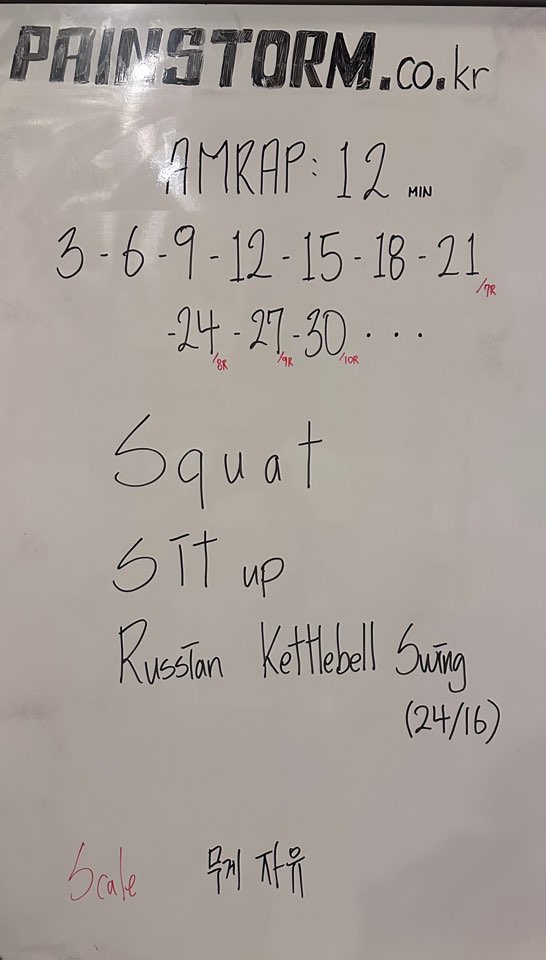 PAINSTORM.co.kr
AMRAP: 12 MIN
3 - 6 - 9 - 12 - 15 - 18 - 21 /7R
- 24 /8R - 27 /9R - 30 /10R . . .
Squat
Sit up
Russian Kettlebell Swing
(24/16)
Scale 무게 자유